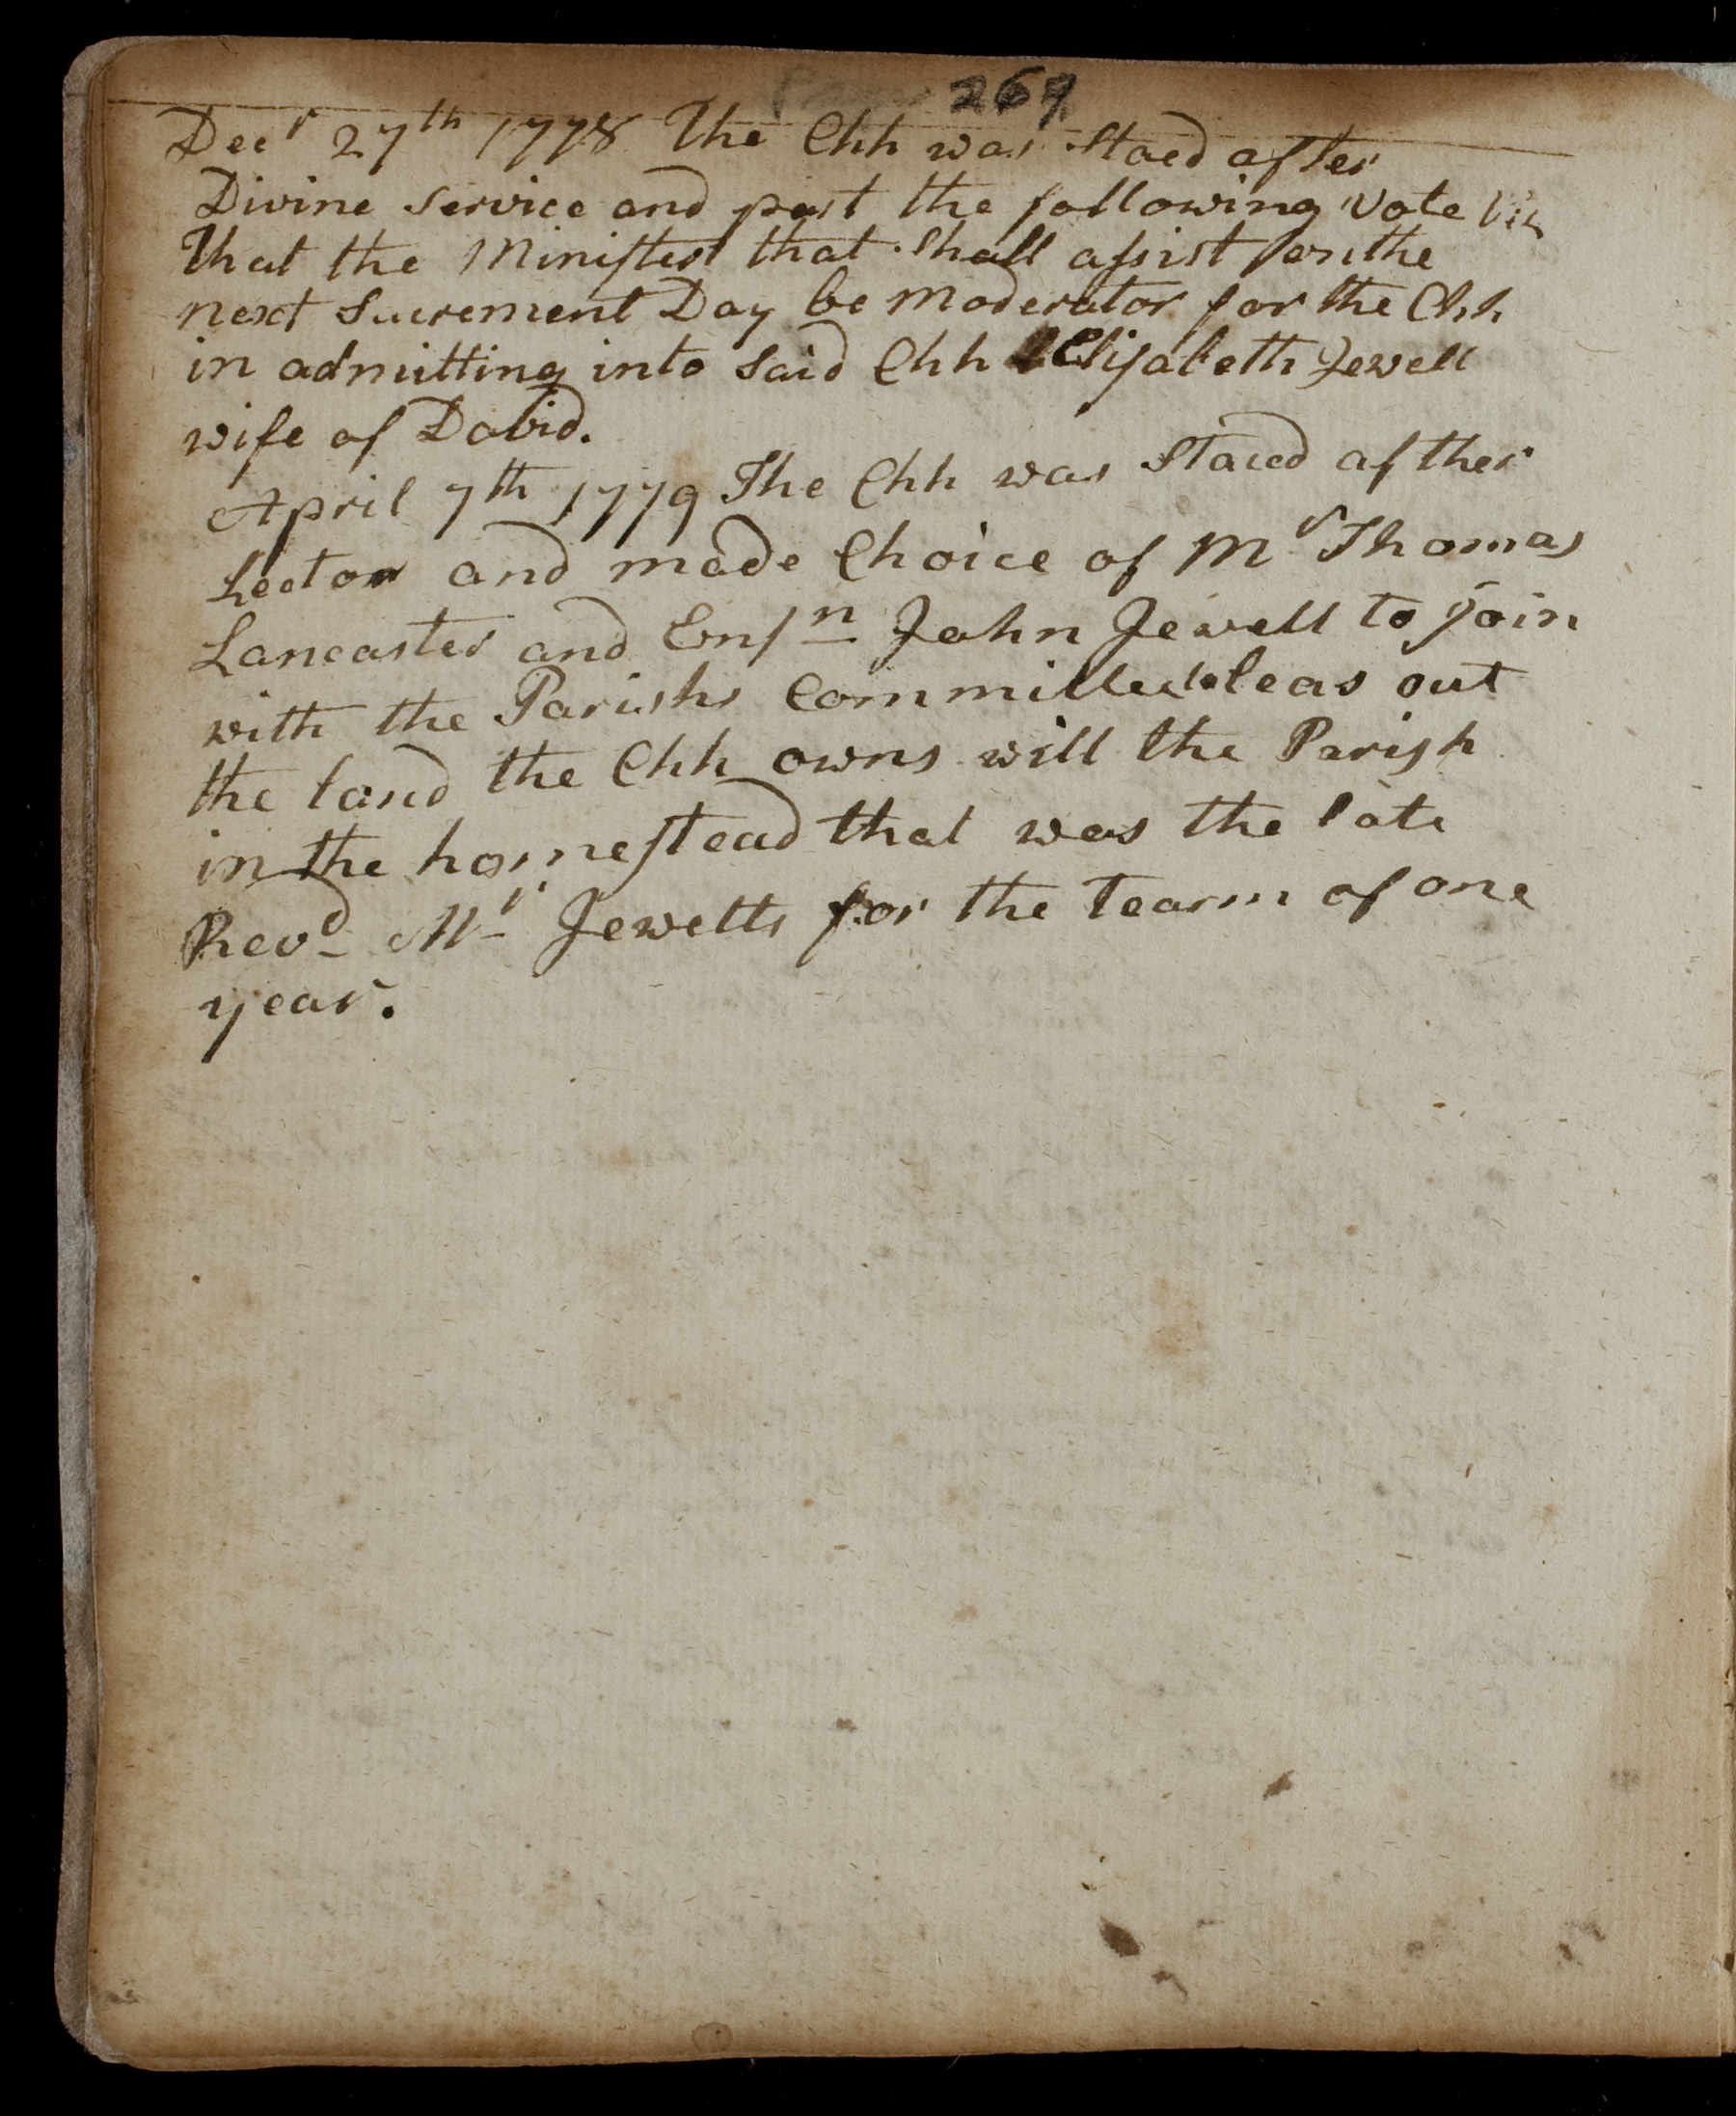 269
Decr 27th 1778 The Chh was Staed after
Divine Service and past the following Vote Viz
That the Minister that Shall assist on the
next Sacrement Day be Moderator for the Chh
in admitting into Said Chh Elisabeth Jewell
wife of David.
April 7th 1779 The Chh was Staied afther
Lector and made Choice of Mr Thomas
Lancaster and Ensn John Jewell to join
with the Parishs Committee to leas out
the land the Chh owns will the Parish
in the homestead that was the late
Revd Mr Jewetts for the Tearm of one
year.